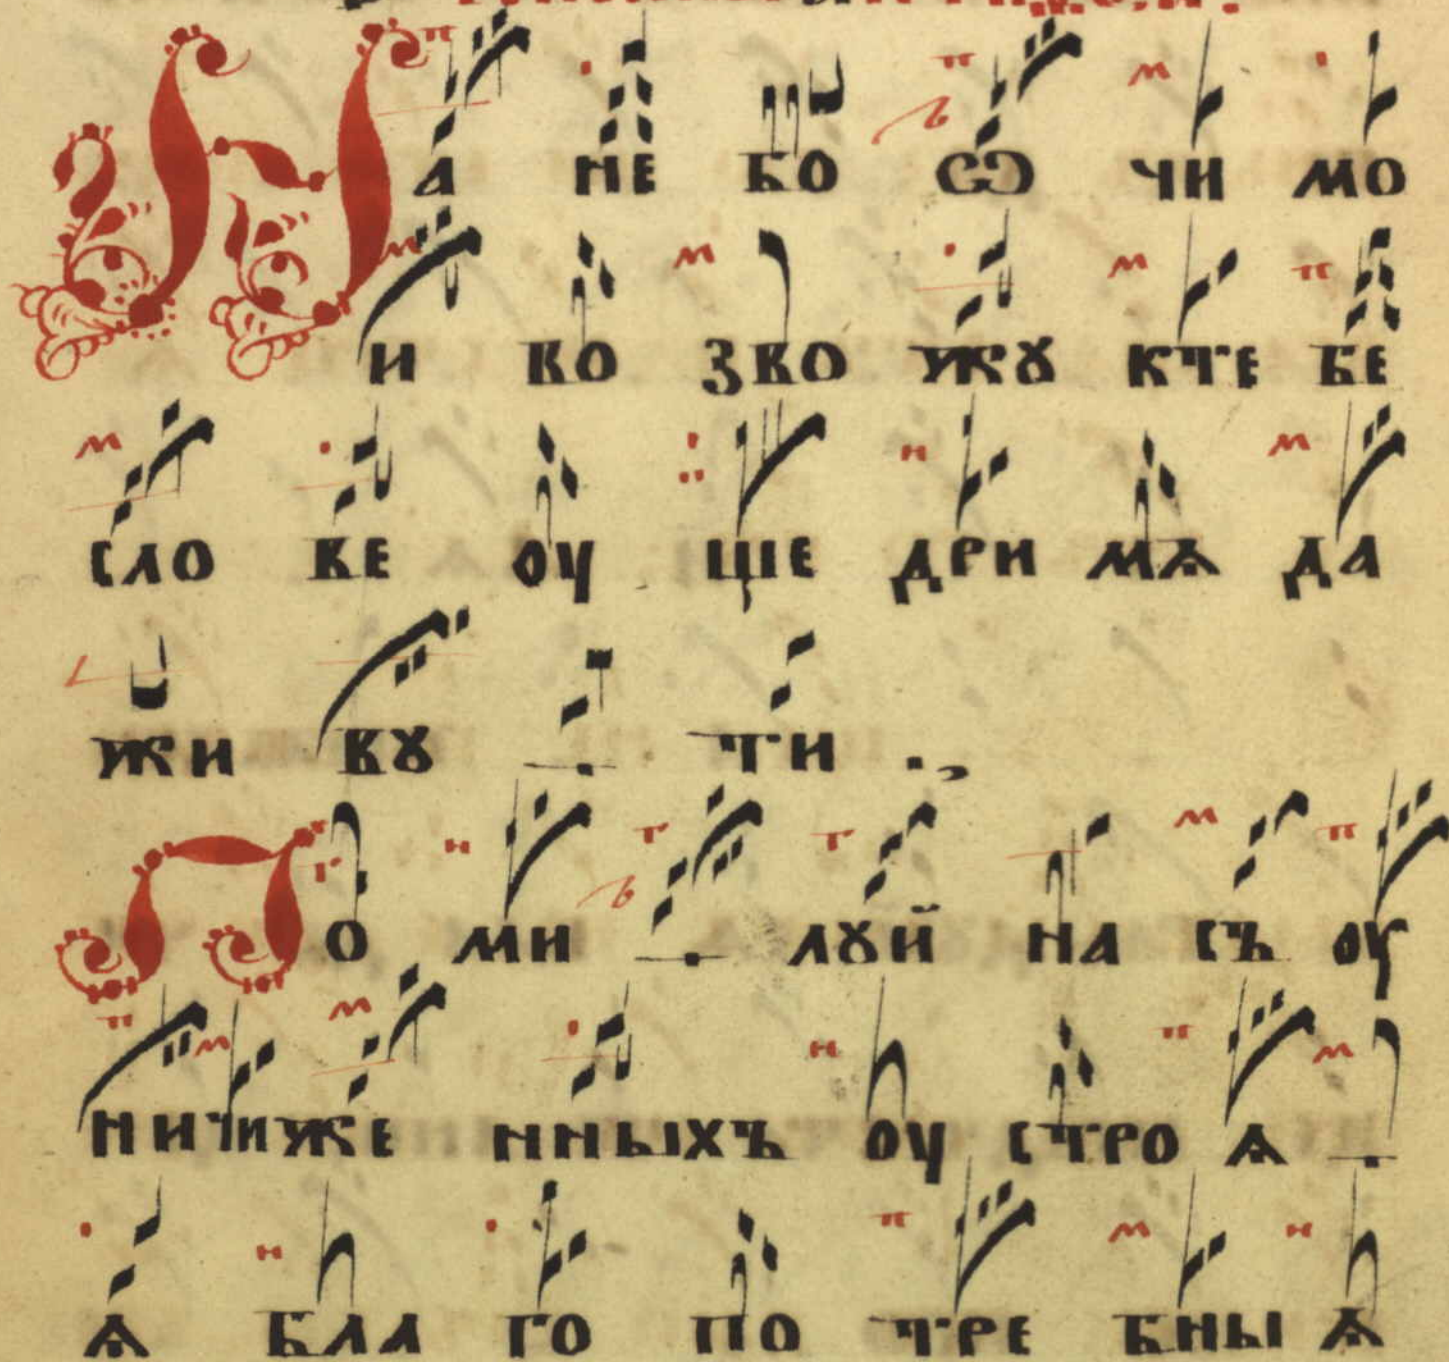 На не бо ѡ чи мо
и во зво жꙋ кте бе
сло ве оу ще дри мѧ да
жи вꙋ ти
По ми лꙋй на съ оу
ни чи же нныхъ оу стро ѧ
ѧ бла го по тре бны ѧ